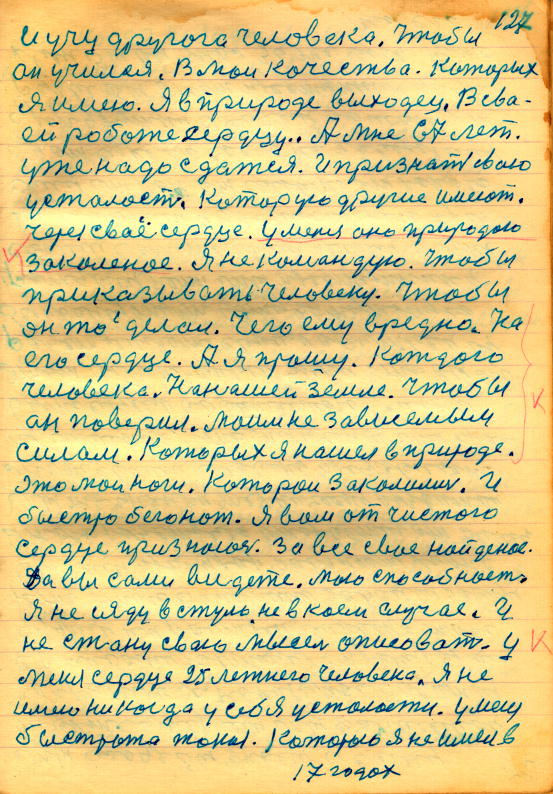 127
и учу другога человека. Чтобы
он учился. В мои качества. Которых
Я имею. Я в природе выходец, В сва-
ей роботе сердцу.. А мне 67 лет.
уже надо сдатся. И признат сваю
усталост. Которую другие имеют.
через сваё сердце. у меня оно природою
закаленое. Я не командую. Чтобы
приказывать человеку. Чтобы
он то делал. Чего ему вредно. На
его сердце. А я прошу. Каждого
человека. На нашей земле. Чтобы
ан поверил. моим не зависемым
силам. Которых я нашел в природе.
это мои ноги. Которои закалилис. И
быстро бегонют. Я вам от чистого
сердце признаюся. За все свое найденое.
Да вы сами видете. мою способность
Я не сяду в стуль не в коем случае. И
не стану сваю мысел описоват. У
меня сердце 25 летнего человека. Я не
имею никогда у себя усталости. у меня
быстрота такая. Которою я не имел в
17 годох